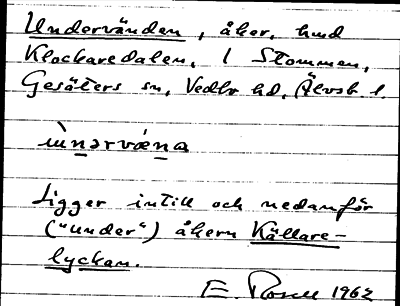 Undervänden, åker, hmd
Klockaredalen, 1 Stommen,
Gesäters sn, Vedbo hd, Älvsb l.
ùnǝrvæ̀na
Ligger intill och nedanför
("under") åkern Källare-
lyckan.
E. 1962